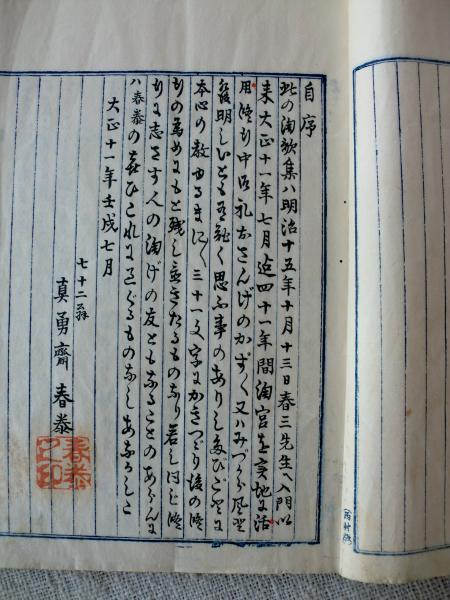 自序
此の淘歌集ハ明治十五年十月十三日春三先生へ入門以
来大正十一年七月迄四十一年間淘宮を実地に活
用修行中日礼おさんげのかず〱又ハみづから
発明しいとも有難く思ふ事のありし度びごとに
本心の教ゆるまに〱三十一文字にかきつゞり後の修
行の為めにもと残し置きたるものなり若し同じ修
行に志さす人の淘げの友ともなることのあらんに
ハ春泰の喜びこれにこへるものなしあなかしこ
大正十一年壬戌七月
七十二翁
真勇齋 春泰
春泰之印